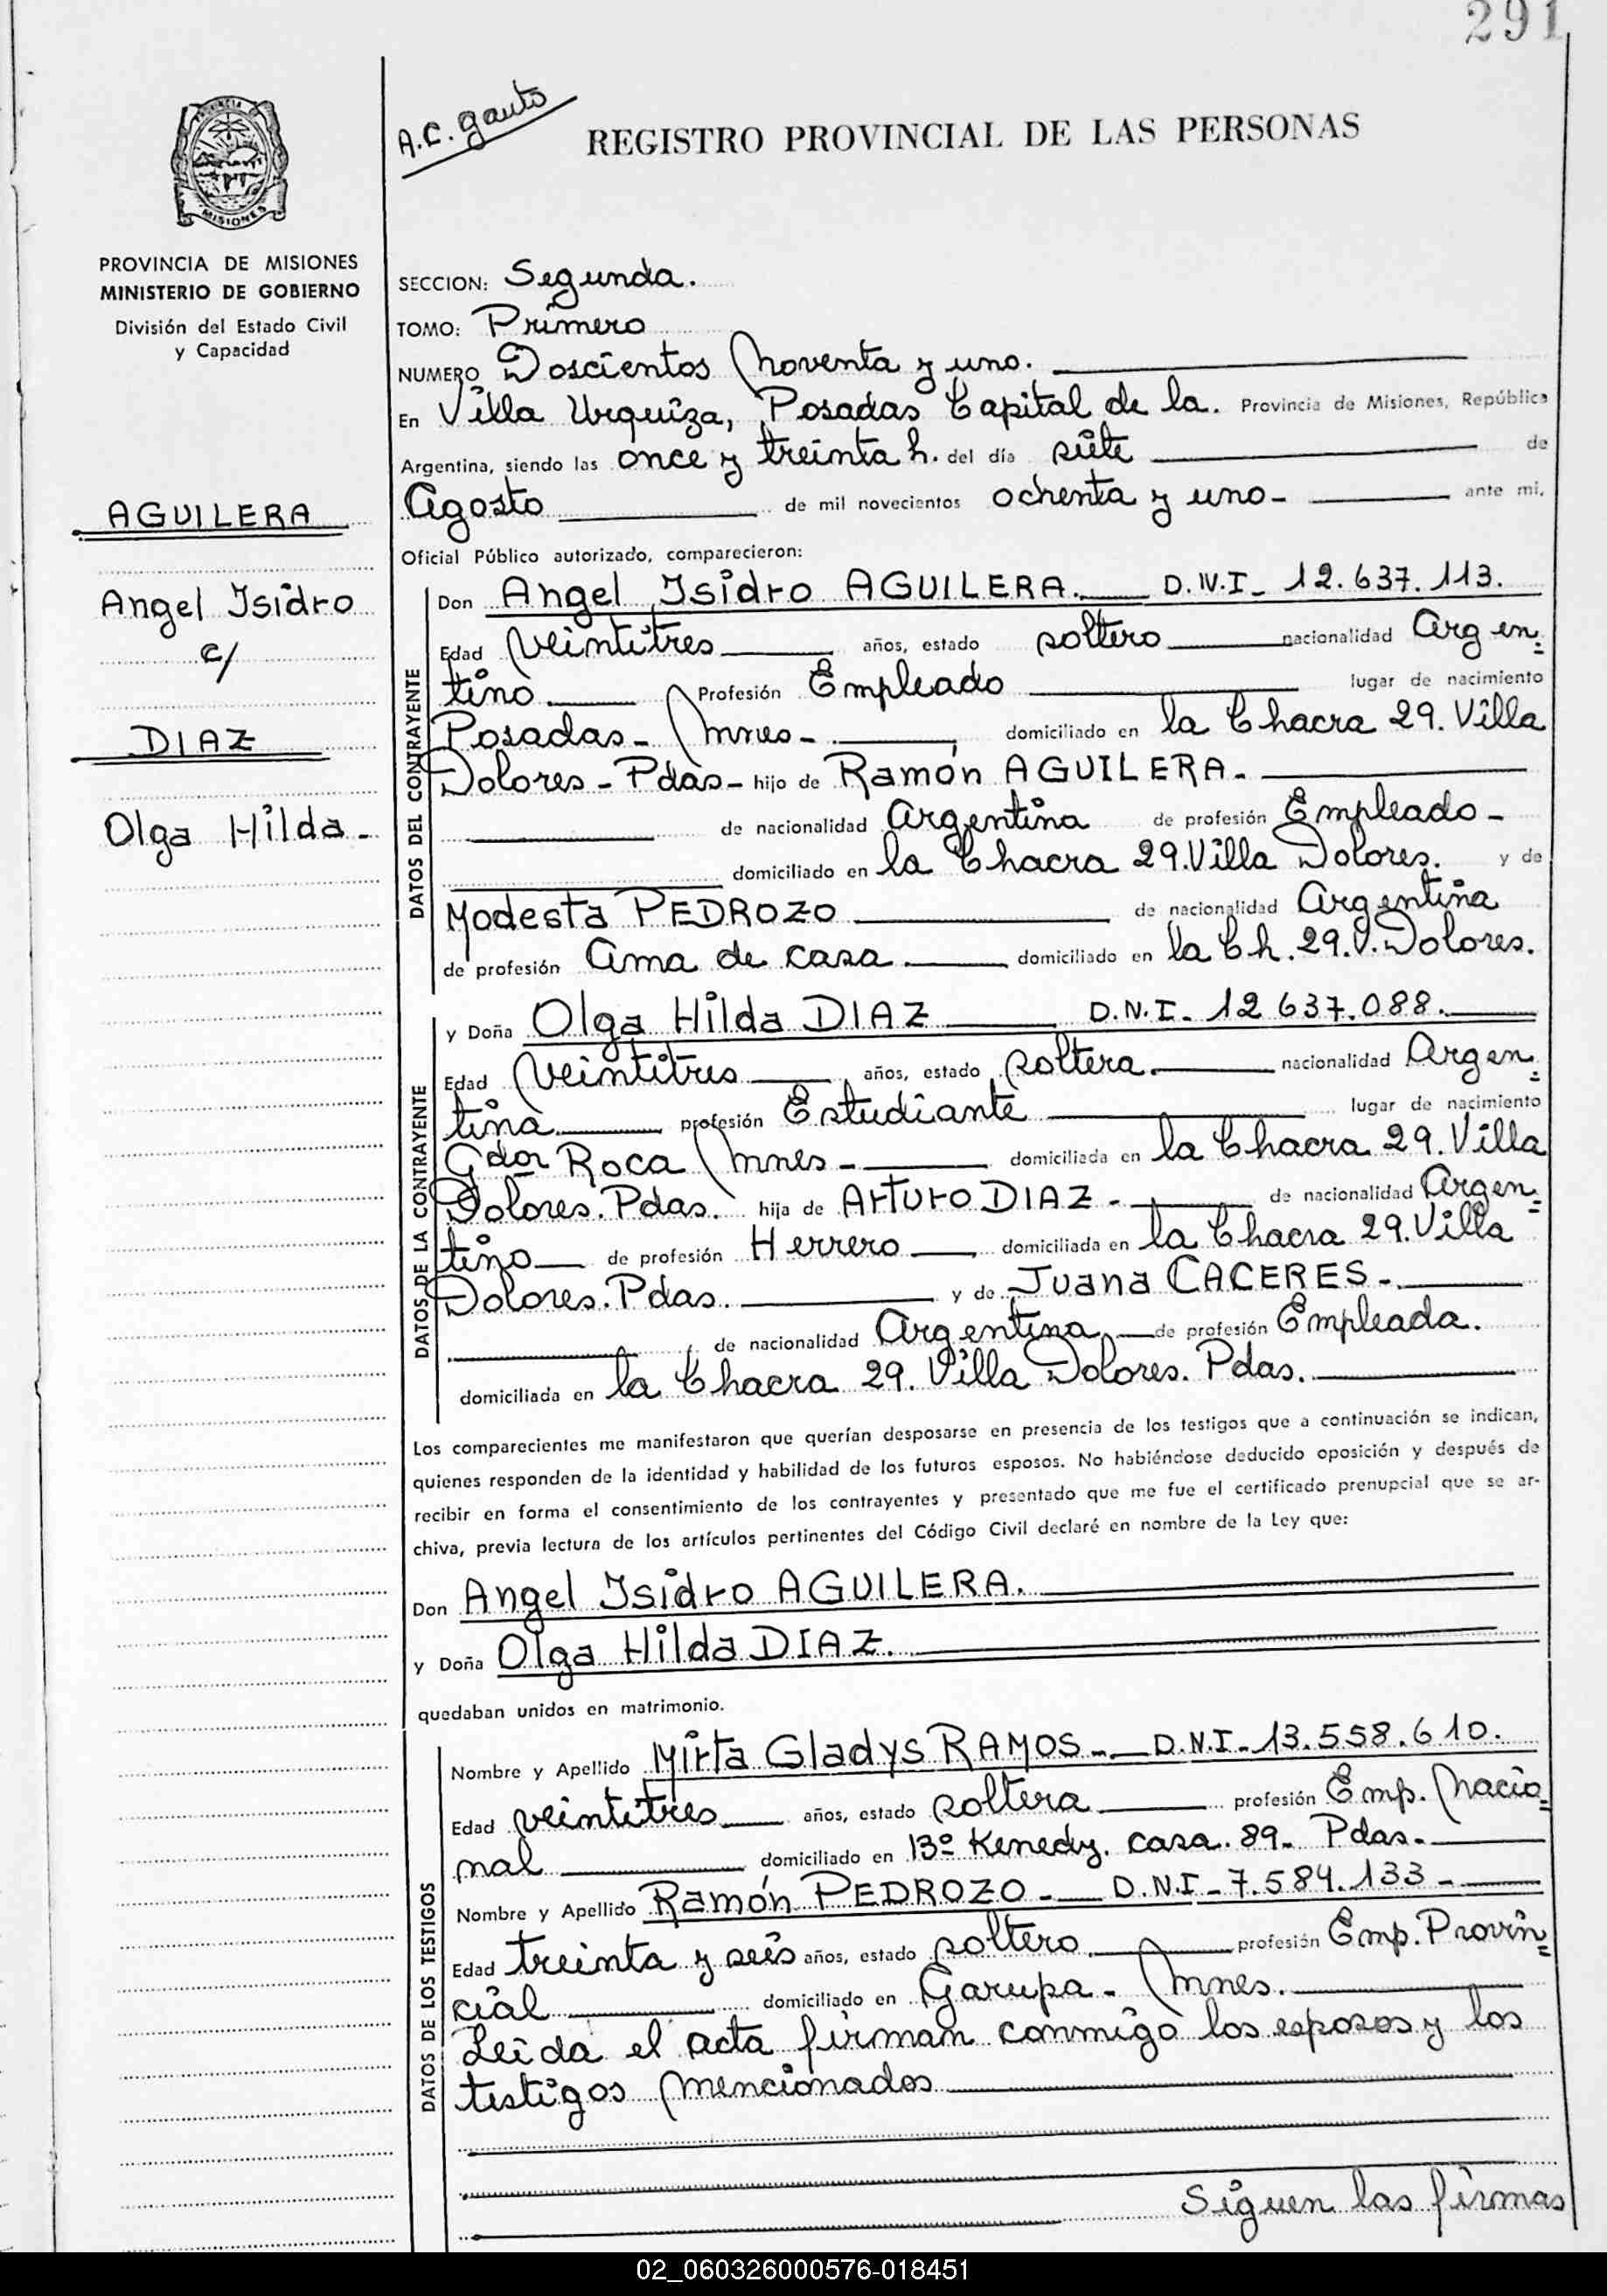 291
A.C. Gauto
REGISTRO PROVINCIAL DE LAS PERSONAS
PROVINCIA
MISIONES
PROVINCIA DE MISIONES
MINISTERIO DE GOBIERNO
División del Estado Civil
y Capacidad
AGUILERA
Angel Isidro
c/
DIAZ
Olga Hilda-
SECCION: Segunda.
TOMO: Primero
NUMERO Doscientos Noventa y uno.
En Villa Urquiza, Posadas Capital de la. Provincia de Misiones, República
Argentina, siendo las once y treinta h. del día siete de
Agosto de mil novecientos ochenta y uno- ante mi,
Oficial Público autorizado, comparecieron:
DATOS DEL CONTRAYENTE
Don Angel Isidro AGUILERA. D.N.I- 12.637.113.
Edad Veintitres años, estado soltero nacionalidad Argen=
tino. Profesión Empleado lugar de nacimiento
Posadas- Mnes- domiciliado en la Chacra 29. Villa
Dolores - Pdas- hijo de Ramón AGUILERA-
de nacionalidad Argentina de profesión Empleado-
domiciliado en la Chacra 29. Villa Dolores. y de
Modesta PEDROZO de nacionalidad Argentina
de profesión Ama de casa domiciliado en la Ch. 29. V. Dolores.
DATOS DE LA CONTRAYENTE
y Doña Olga Hilda DIAZ D.N.I- 12 637.088.
Edad Veintitres años, estado soltera. nacionalidad Argen=
tina profesión Estudiante lugar de nacimiento
Gdor Roca Mnes- domiciliada en la Chacra 29. Villa
Dolores. Pdas. hija de Arturo DIAZ- de nacionalidad Argen=
tino de profesión Herrero domiciliada en la Chacra 29. Villa
Dolores. Pdas. y de Juana CACERES-
de nacionalidad Argentina de profesión Empleada.
domiciliada en la Chacra 29. Villa Dolores. Pdas.
Los comparecientes me manifestaron que querían desposarse en presencia de los testigos que a continuación se indican,
quienes responden de la identidad y habilidad de los futuros esposos. No habiéndose deducido oposición y después de
recibir en forma el consentimiento de los contrayentes y presentado que me fue el certificado prenupcial que se ar-
chiva, previa lectura de los artículos pertinentes del Código Civil declaré en nombre de la Ley que:
Don Angel Isidro AGUILERA.
y Doña Olga Hilda DIAZ.
quedaban unidos en matrimonio.
DATOS DE LOS TESTIGOS
Nombre y Apellido Mirta Gladys RAMOS- D.N.I-13.558.610.
Edad veintitres años, estado soltera profesión Emp. Nacio=
nal domiciliado en 13º Kenedy. casa. 89- Pdas-
Nombre y Apellido Ramón PEDROZO- D.N.I-7.584.133-
Edad treinta y seis años, estado soltero. profesión Emp. Provin=
cial domiciliado en Garupa- Mnes.
Leida el acta firman conmigo los esposos y los
testigos mencionados
Siguen las firmas
02_060326000576-018451